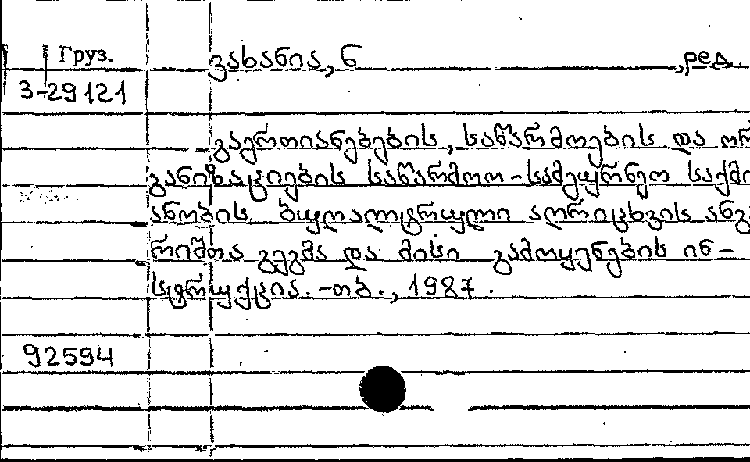 Груз. ვახანია, ნ ,ред.
3-29121
გაერთიანებების, საწარმოების და ორ
განიზაციების საწარმოო-სამეურნეო საქმი
ანობის ბუღალტრული აღრიცხვის ანგა
რიშთა გეგმა და მისი გამოყენების ინ-
სტრუქცია. -თბ., 1987.
92594